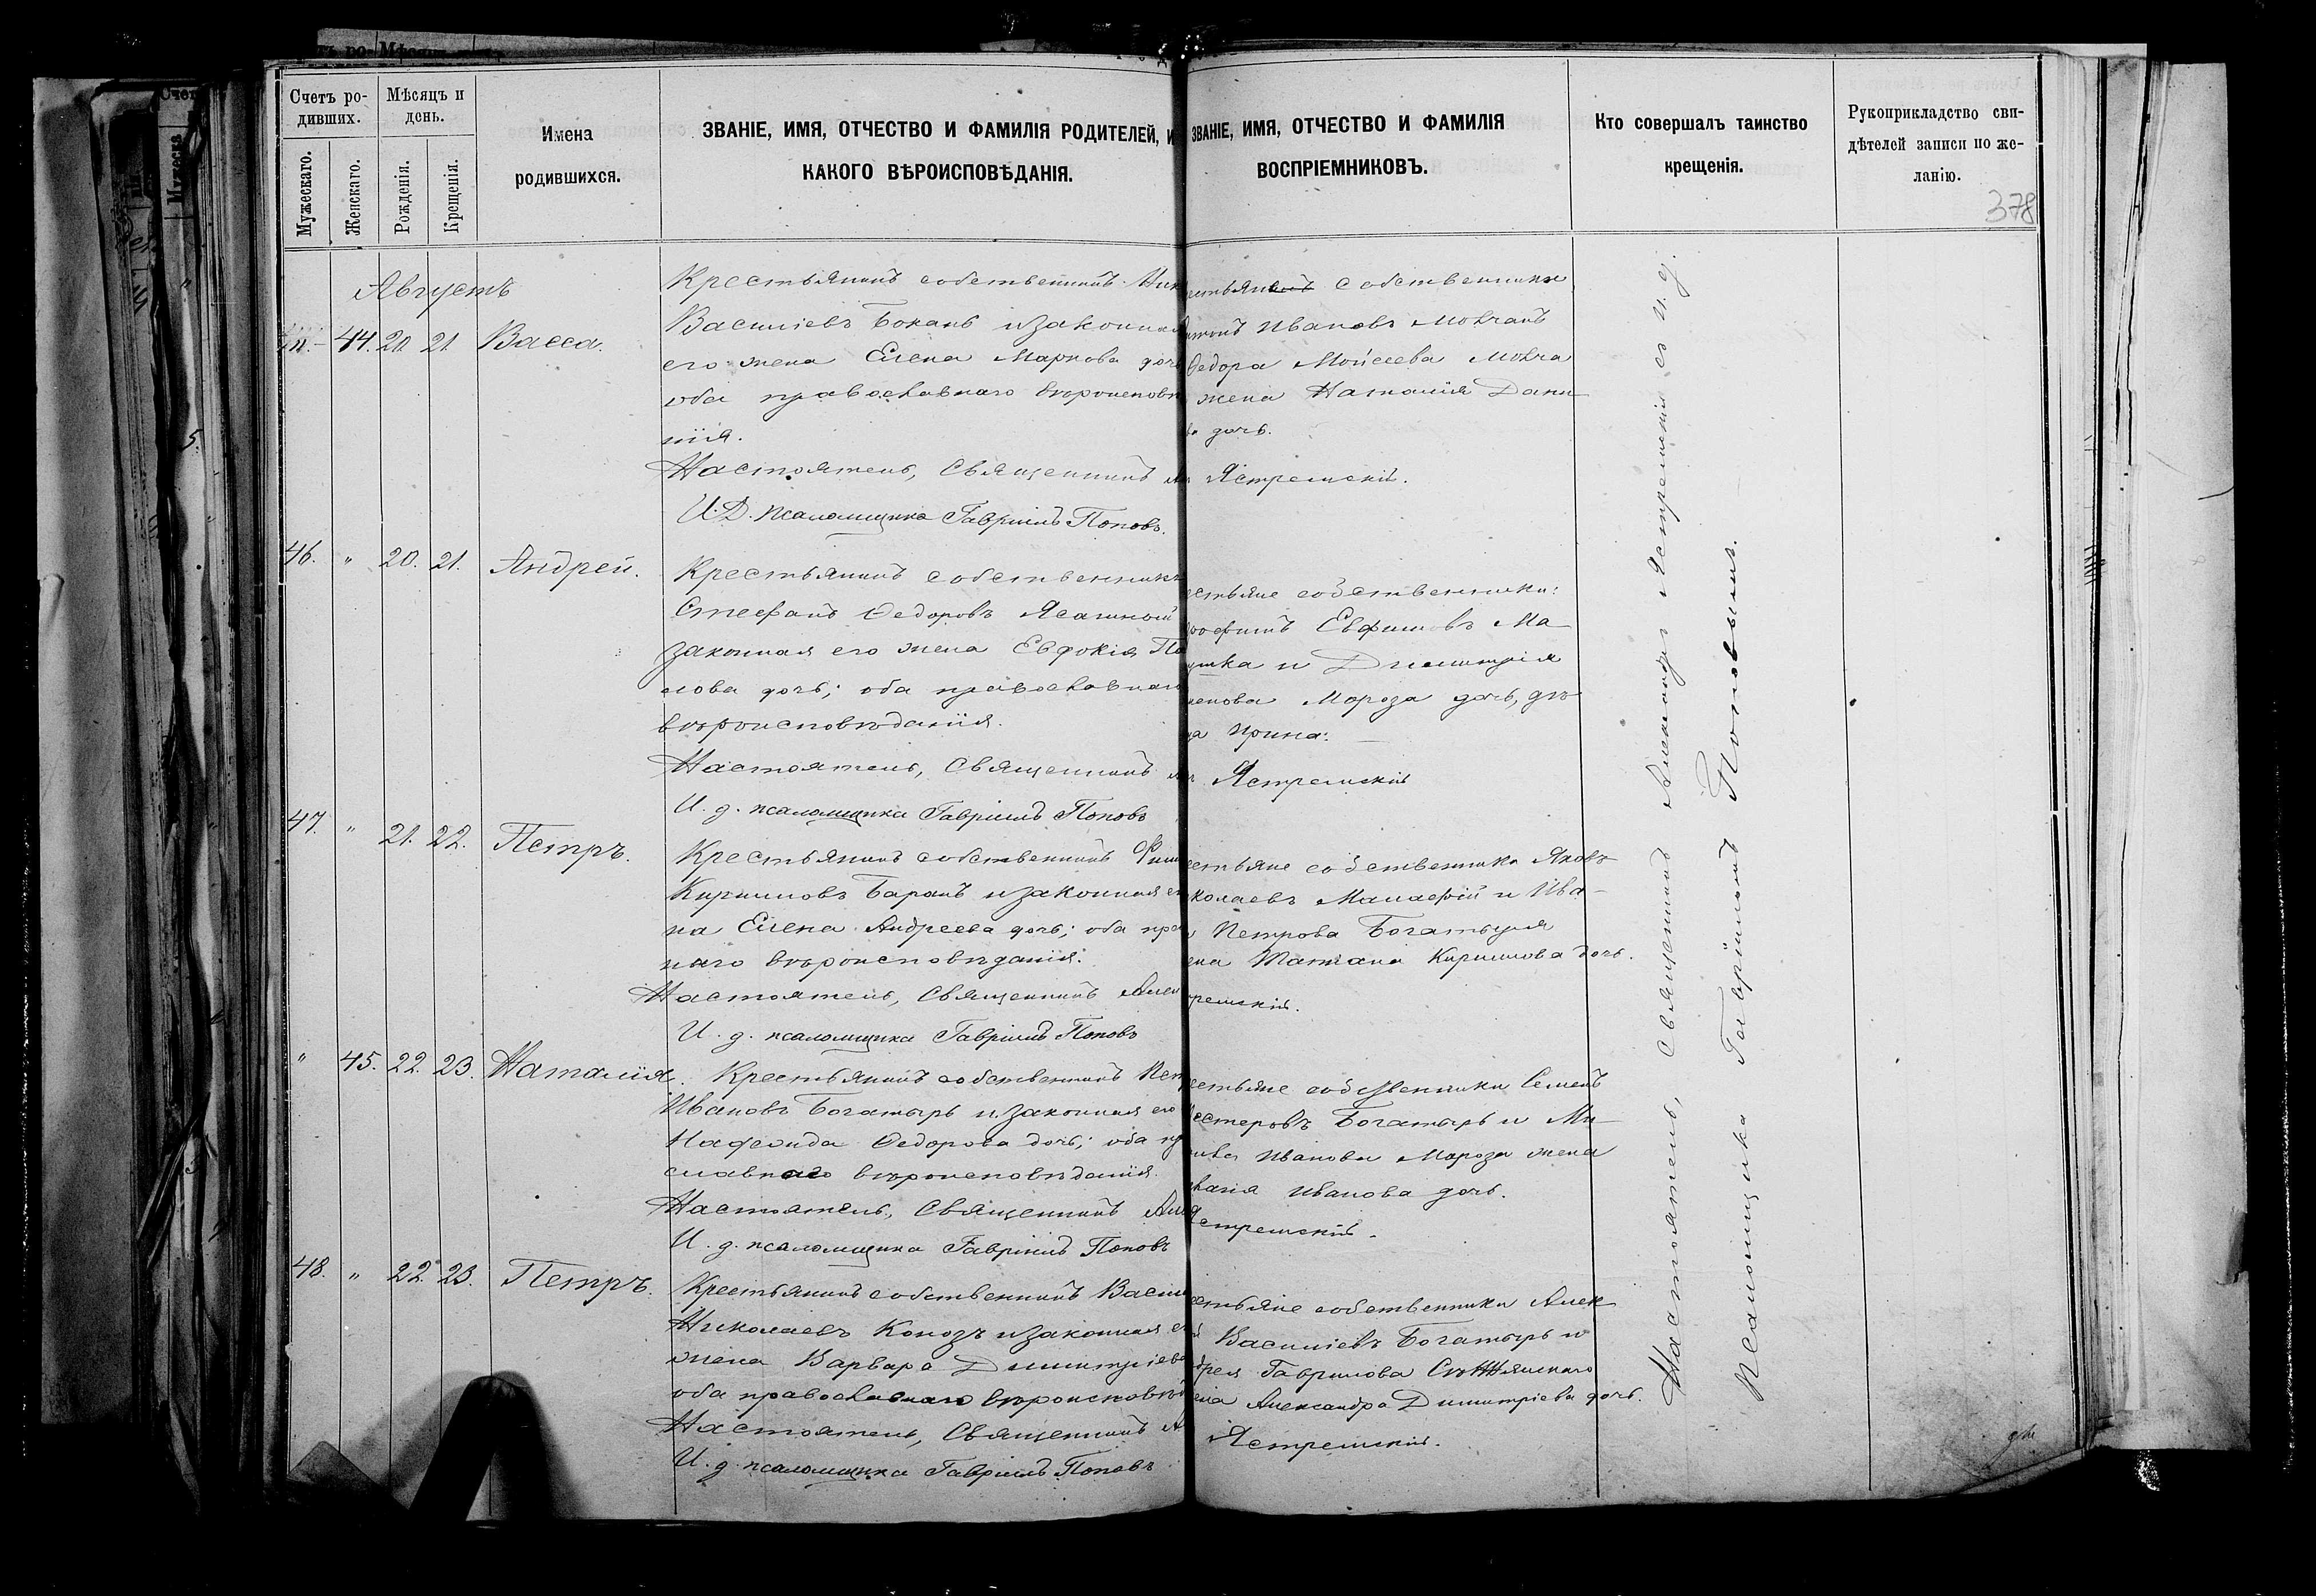 Счетъ ро-
дившихъ.
Мѣсяцъ и
день.
Мужескаго.
Женскаго.
Рожденія.
Крещенія.
Имена
родившихся.
ЗВАНІЕ, ИМЯ, ОТЧЕСТВО И ФАМИЛІЯ РОДИТЕЛЕЙ, И
КАКОГО ВѢРОИСПОВѢДАНІЯ.
ЗВАНІЕ, ИМЯ, ОТЧЕСТВО И ФАМИЛІЯ
ВОСПРІЕМНИКОВЪ.
Кто совершалъ таинство
крещенія.
Рукоприкладство сви-
дѣтелей записи по же-
ланію.
378
Августъ
44. 20. 21. Васса.
Крестьянинъ собственникъ Ник
Василіевъ Бокань и законная
его жена Елена Маркова дочь
оба православнаго вѣроисповѣ
нія.
Настоятель, Священникъ
И.Д. псаломщика Гавріилъ Поповъ.
собственники
Ивановъ Мовчанъ
Федора Мойсеева Мовча
жена Наталія Дани
ва дочь.
Ястремскій.
46. " 20. 21. Андрей.
Крестьянинъ собственникъ
Стефанъ Федоровъ
законная его жена Евдокія Па
лова дочь; оба православнаго
вѣроисповѣданія.
Настоятель, Священникъ
И. д. псаломщика Гавріилъ Поповъ
стьяне собственники:
рофимъ Евфимовъ Ма
и Димитрія
Мороза дочь, дѣ
ца Ирина.
Ястремскій
47. " 21. 22. Петръ.
Крестьянинъ собственникъ Фили
Кирилловъ Баранъ и законная ег
на Елена Андреева дочь; оба пра
наго вѣроисповѣданія.
Настоятель, Священникъ Алек
И. д. псаломщика Гавріилъ Поповъ
стьяне собственники Яковъ
колаевъ и Ива-
Петрова Богатыря
ена Татіана Кириллова дочь.
ремскій.
" 45. 22. 23. Наталія.
Крестьянинъ собственникъ Пет
Ивановъ Богатырь и законная его
Федорова дочь; оба пр
славнаго вѣроисповѣданія.
Настоятель, Священникъ Алек
И. д. псаломщика Гавріилъ Поповъ
стьяне собственники Семенъ
Нестеровъ Богатырь и Ми-
Иванова Мороза жена
Иванова дочь.
Ястремскій.
48. " 22. 23. Петръ.
Крестьянинъ собственникъ Васил
Николаевъ Конозъ и законная е
жена Варвара Димитріева
оба православнаго вѣроисповѣд
Настоятель, Священникъ А
И. д. псаломщика Гавріилъ Поповъ
стьяне собственники Алек
Василіевъ Богатырь и
дрея Гаврилова
ена Александра Димитріева дочь.
Ястремскій.
Настоятель, Священникъ Александръ Ястремскій съ и. д.
псаломщика Гавріиломъ Поповымъ.